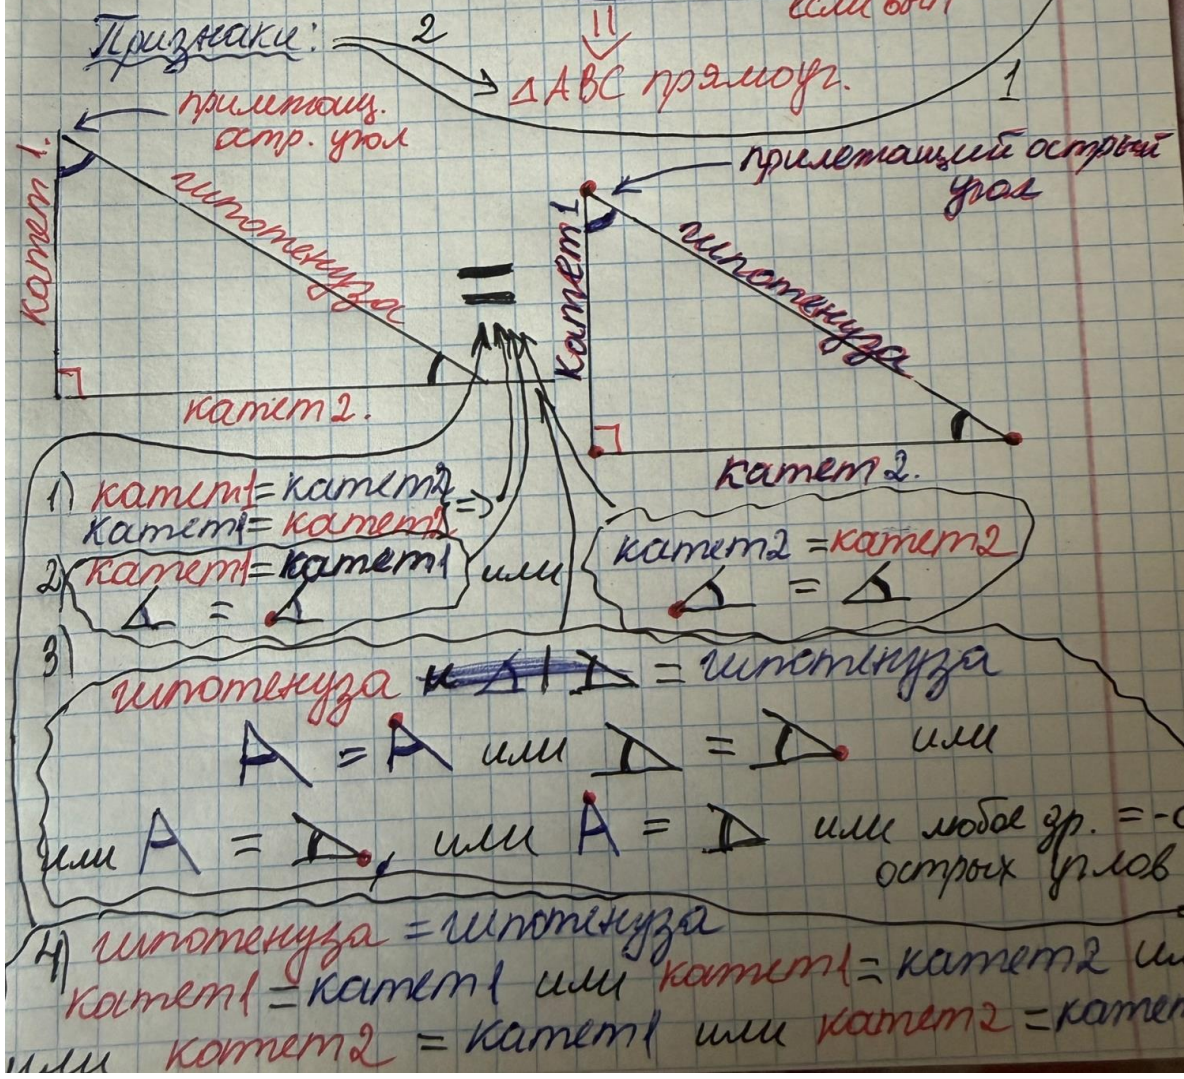 если был
Признаки: 2
△ABC прямоуг.
1
прилежащ.
остр. угол
катет 1.
гипотенуза
катет 2.
=
прилежащий острый
угол
катет 1
гипотенуза
катет 2.
1) катет1 = катет2
катет1 = катет2 =>
2) катет1 = катет1 или
=
катет2 = катет2
=
3)
гипотенуза и = гипотенуза
= или = или
или = , или = или любое др. =-о
острых углов
4) гипотенуза = гипотенуза
катет1 = катет1 или катет1 = катет2 ил
или катет2 = катет1 или катет2 = катет